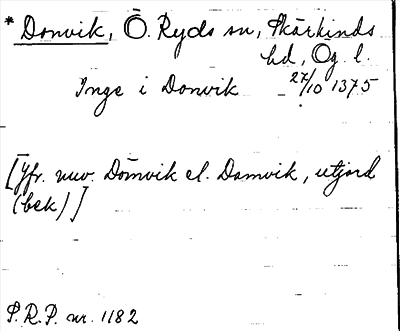 * Donvik, Ö. Ryds sn, Skärkinds
hd, Ög. l.
Inge i Donvik 27/10 1375
[Jfr. nuv. Domvik el. Damvik, utjord
(bek)]
P.R.P. nr. 1182